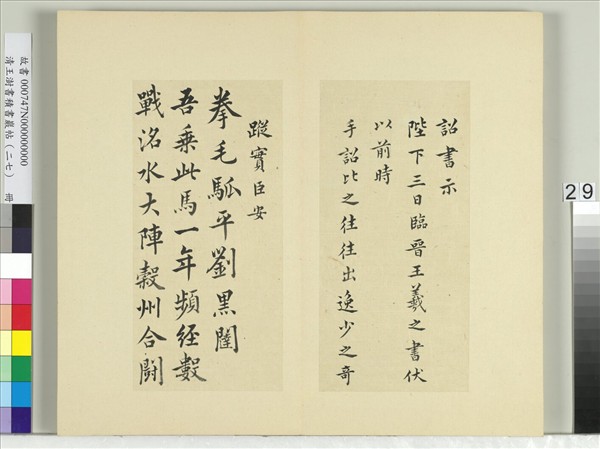 詔書示
陛下三日臨晉王羲之書伏
以前時
手詔比之往往出逸少之奇
蹤實臣安
拳毛騧平劉黑闥
吾乘此馬一年頻經數
戰洺水大陣穀州合鬪
故書 000747N000000000
清王澍書積書巖帖(二七) 冊
29